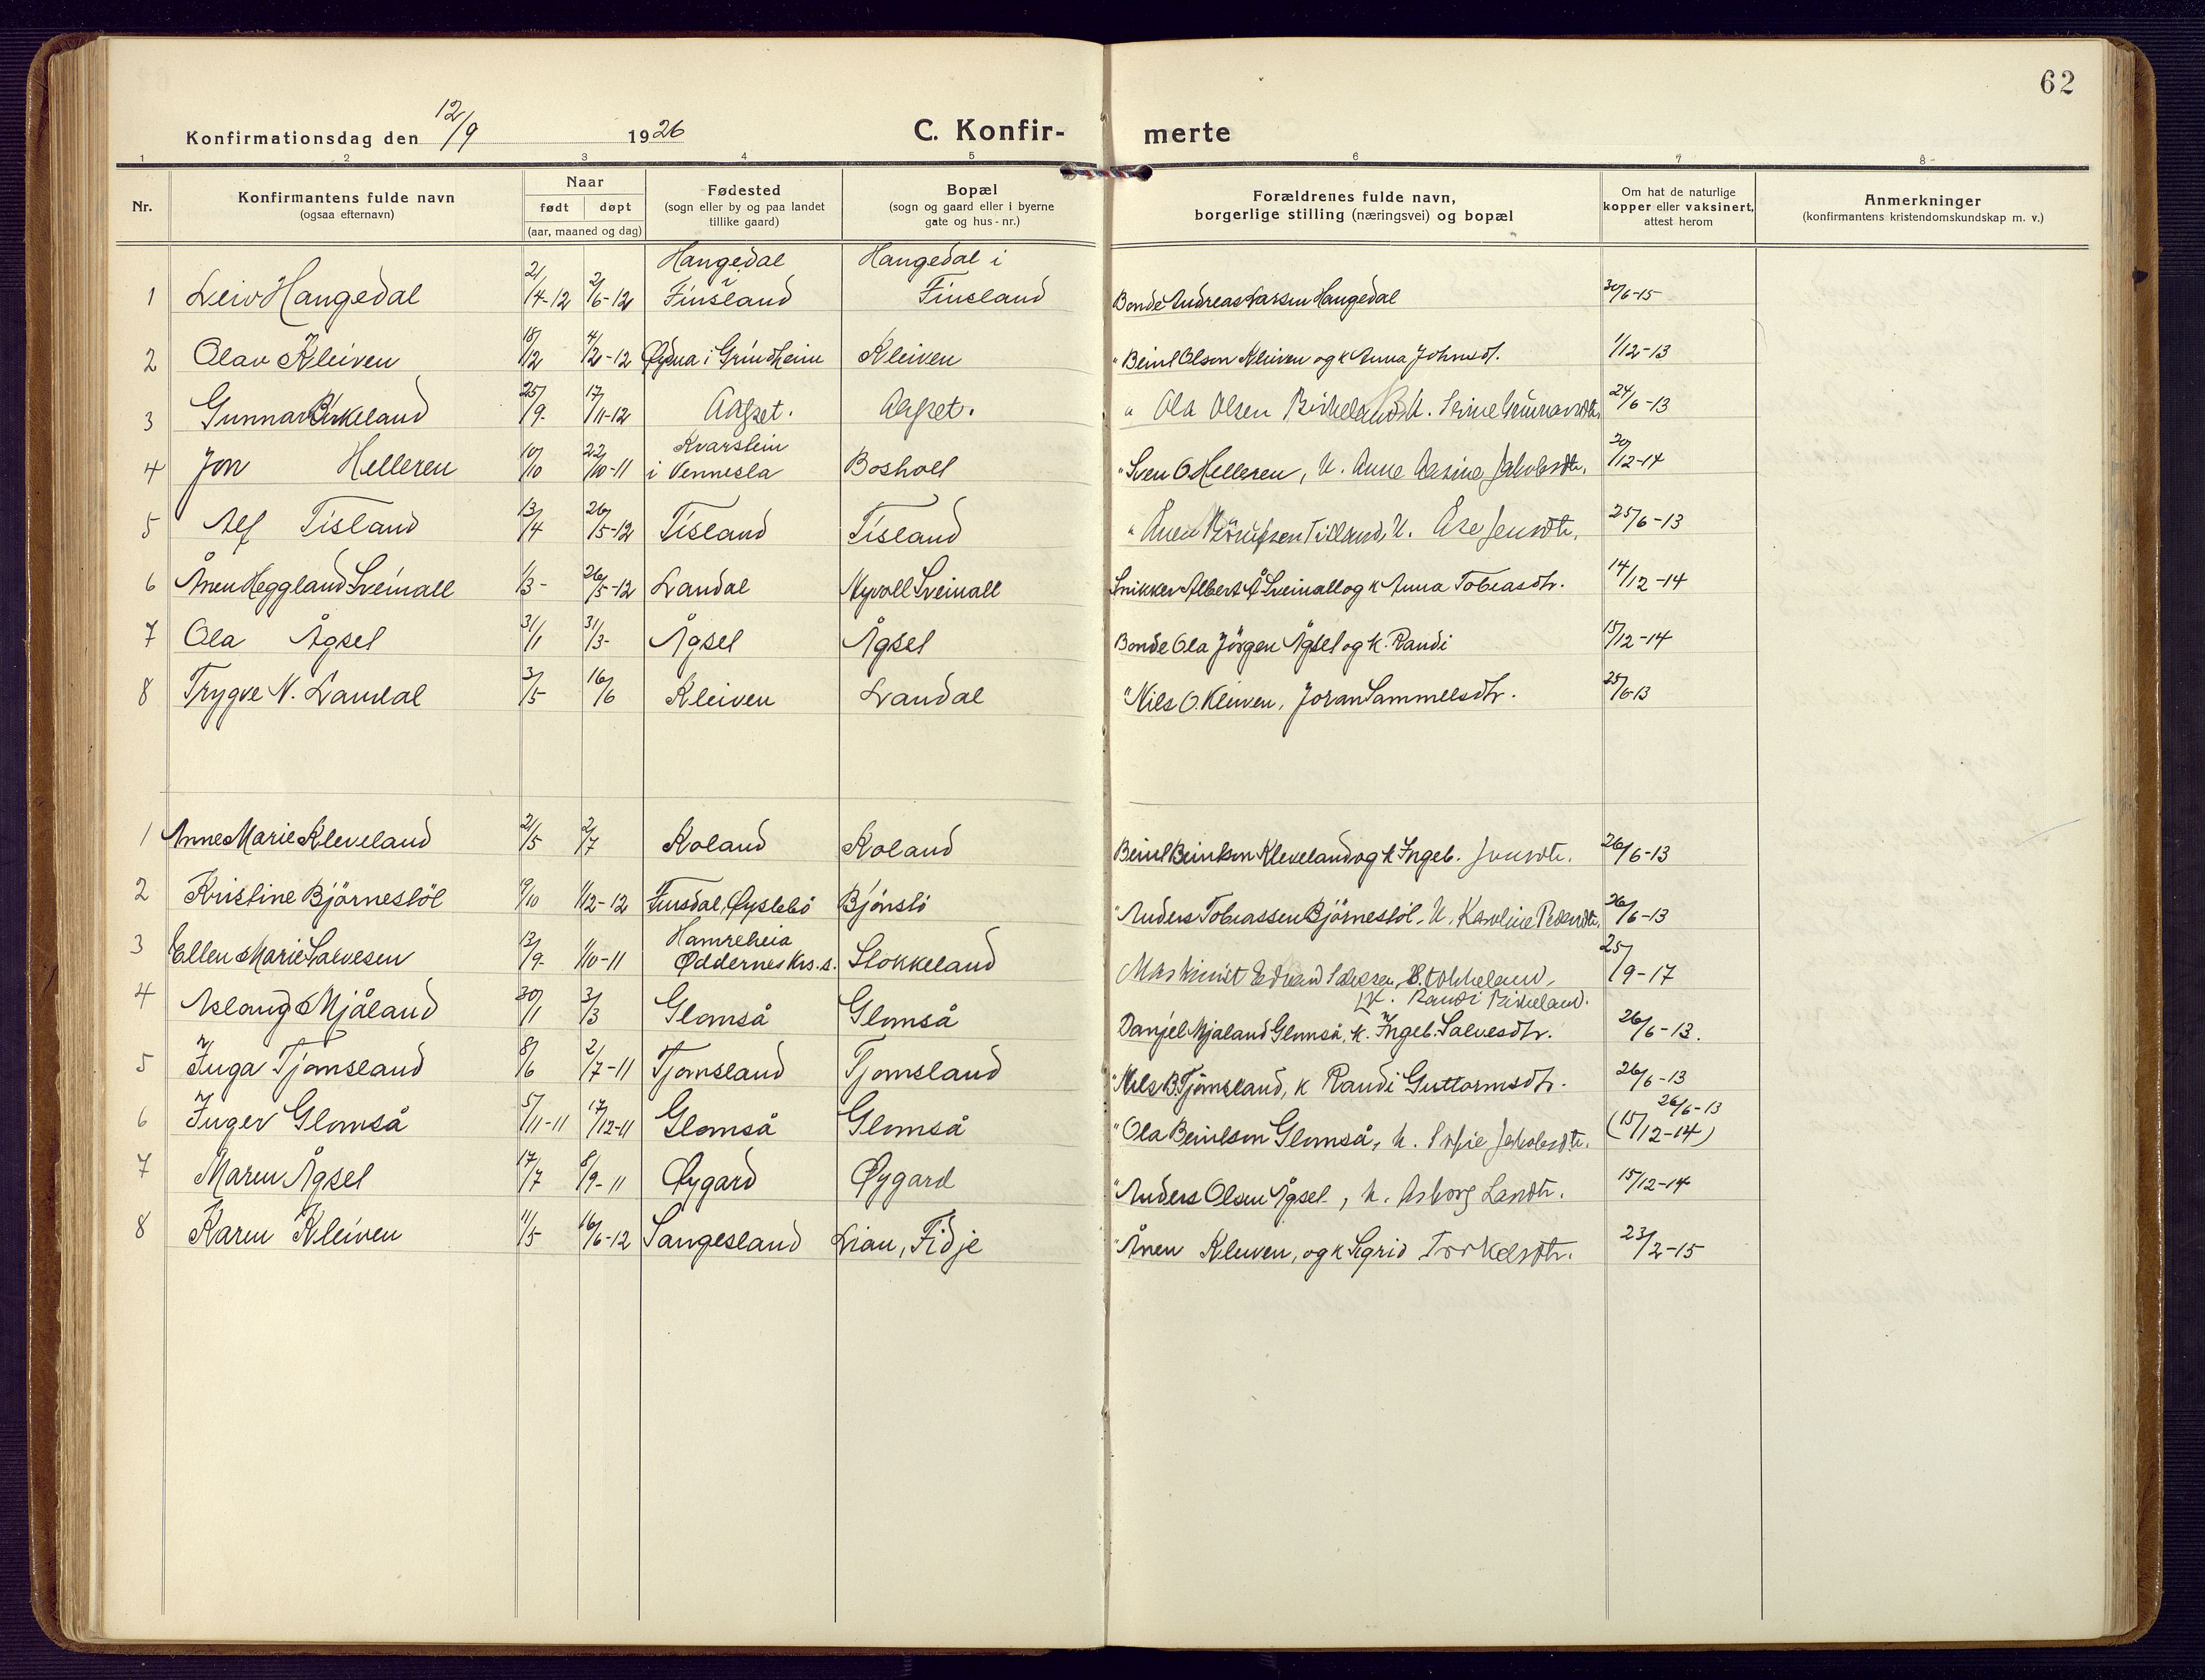 62
Konfirmationsdag den 12/9 1926
C. Konfirmerte
1 2 3 4 5 6 7 8
Nr.
Konfirmantens fulde navn
(ogsaa efternavn)
Naar
født døpt
(aar, maaned og dag)
Fødested
(sogn eller by og paa landet
tillike gaard)
Bopæl
(sogn og gaard eller i byerne
gate og hus-nr.)
Forældrenes fulde navn,
borgerlige stilling (næringsvei) og bopæl
Om hat de naturlige
kopper eller vaksinert,
attest herom
Anmerkninger
(konfirmantens kristendomskundskap m. v.)
1 Leiv Haugedal 21/4-12 2/6-12 Haugedal i Finsland Haugedal i Finsland Bonde Andreas Larsen Haugedal 30/6-15
2 Olav Kleiven 18/12 4/2-12 Øydna i Grindheim Kleiven " Beint Olson Kleiven og k Anna Johnsdt. 1/12-13
3 Gunnar Birkeland 25/9- 17/11-12 Aagset. Aagset. " Ola Olsen Birkeland k. Gunnarsdtr. 24/6-13
4 Jon Helleren 10/10 22/10-11 Kvarstein i Vennesla Bosholt " Sven O Helleren, k. Anne Jakobsdtr. 20/12-14
5 Alf Tisland 13/4 26/5-12 Tisland Tisland " Ånen Tisland, k. Åse Jensdtr. 25/6-13
6 Ånen Heggland Sveinall 1/3- 26/5-12 Landal Nyvoll Sveinall Snikker Albert Å Sveinall og k Anna Tobiasdtr. 14/12-14
7 Ola Ågsel 31/1 31/3- Ågsel Ågsel Bonde Ola Jörgen Ågsel og k. Randi 15/12-14
8 Trygve N. Landal 3/5 16/6 Kleiven Landal " Nils O. Kleiven, Joran Sammelsdtr. 25/6-13
1 Anne Marie Kleveland 21/5 2/7 Roland Roland Beint Beintson Kleveland og k Ingeb. Jensdtr. 26/6-13
2 Kristine Björnestöl 9/10 1/12-12 Øyslebö Björnstö " Anders Tobiassen Björnestöl, k. Karoline Pedersdtr. 26/6-13
3 Ellen Marie Salvesen 13/9- 1/10-11 Hamreheia Oddernes Krs.s. Stokkeland Maskinist Edvard Salvesen, Stokkeland, k. Randi Birkeland. 25/9-17
4 Aslaug Mjåland 30/1 3/3 Glomså Glomså Danjel Mjaland Glomså, k. Ingeb. Salvesdtr. 26/6-13.
5 Inga Tjomsland 8/6 2/7-11 Tjomsland Tjomsland " Nils B. Tjomsland, k Randi Guttormsdtr. 26/6-13
6 Inger Glomså 5/11-11 17/12-11 Glomså Glomså " Ola Beintson Glomså, k. Sofie Jakobsdtr. 26/6-13 (15/12-14)
7 Maren Ågsel 17/7 8/9-11 Øygard Øygard " Anders Olsen Ågsel, k. Asborg Larsdtr. 15/12-14
8 Karen Kleiven 11/5 16/6-12 Sangesland Lian, Fidje " Ånen Kleiven, og k Sigrid Torkelsdtr. 23/2-15